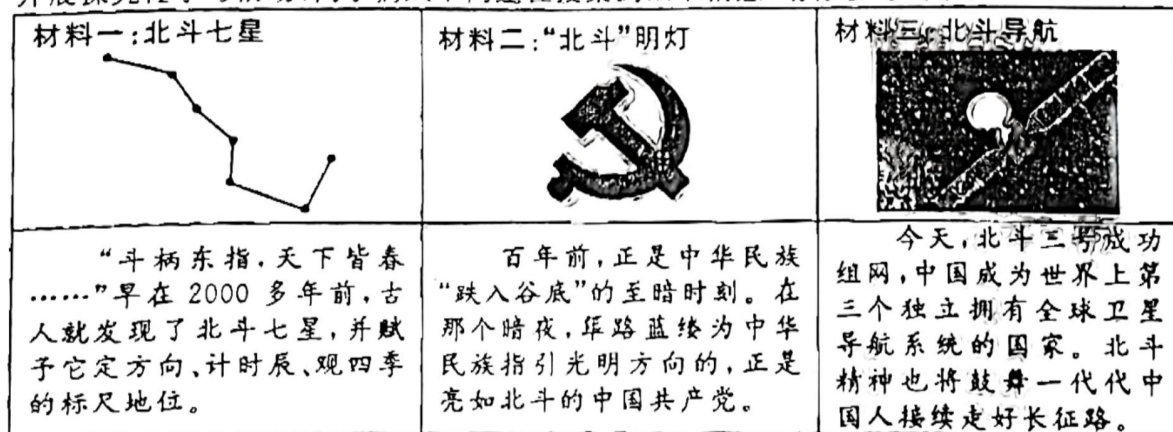 材料一:北斗七星
“斗柄东指,天下皆春
……”早在 2000 多年前,古
人就发现了北斗七星,并赋
予它定方向、计时辰、观四季
的标尺地位。
材料二:“北斗”明灯
百年前,正是中华民族
“跌入谷底”的至暗时刻。在
那个暗夜,筚路蓝缕为中华
民族指引光明方向的,正是
亮如北斗的中国共产党。
材料三:北斗导航
今天,北斗三号成功
组网,中国成为世界上第
三个独立拥有全球卫星
导航系统的国家。北斗
精神也将鼓舞一代代中
国人接续走好长征路。